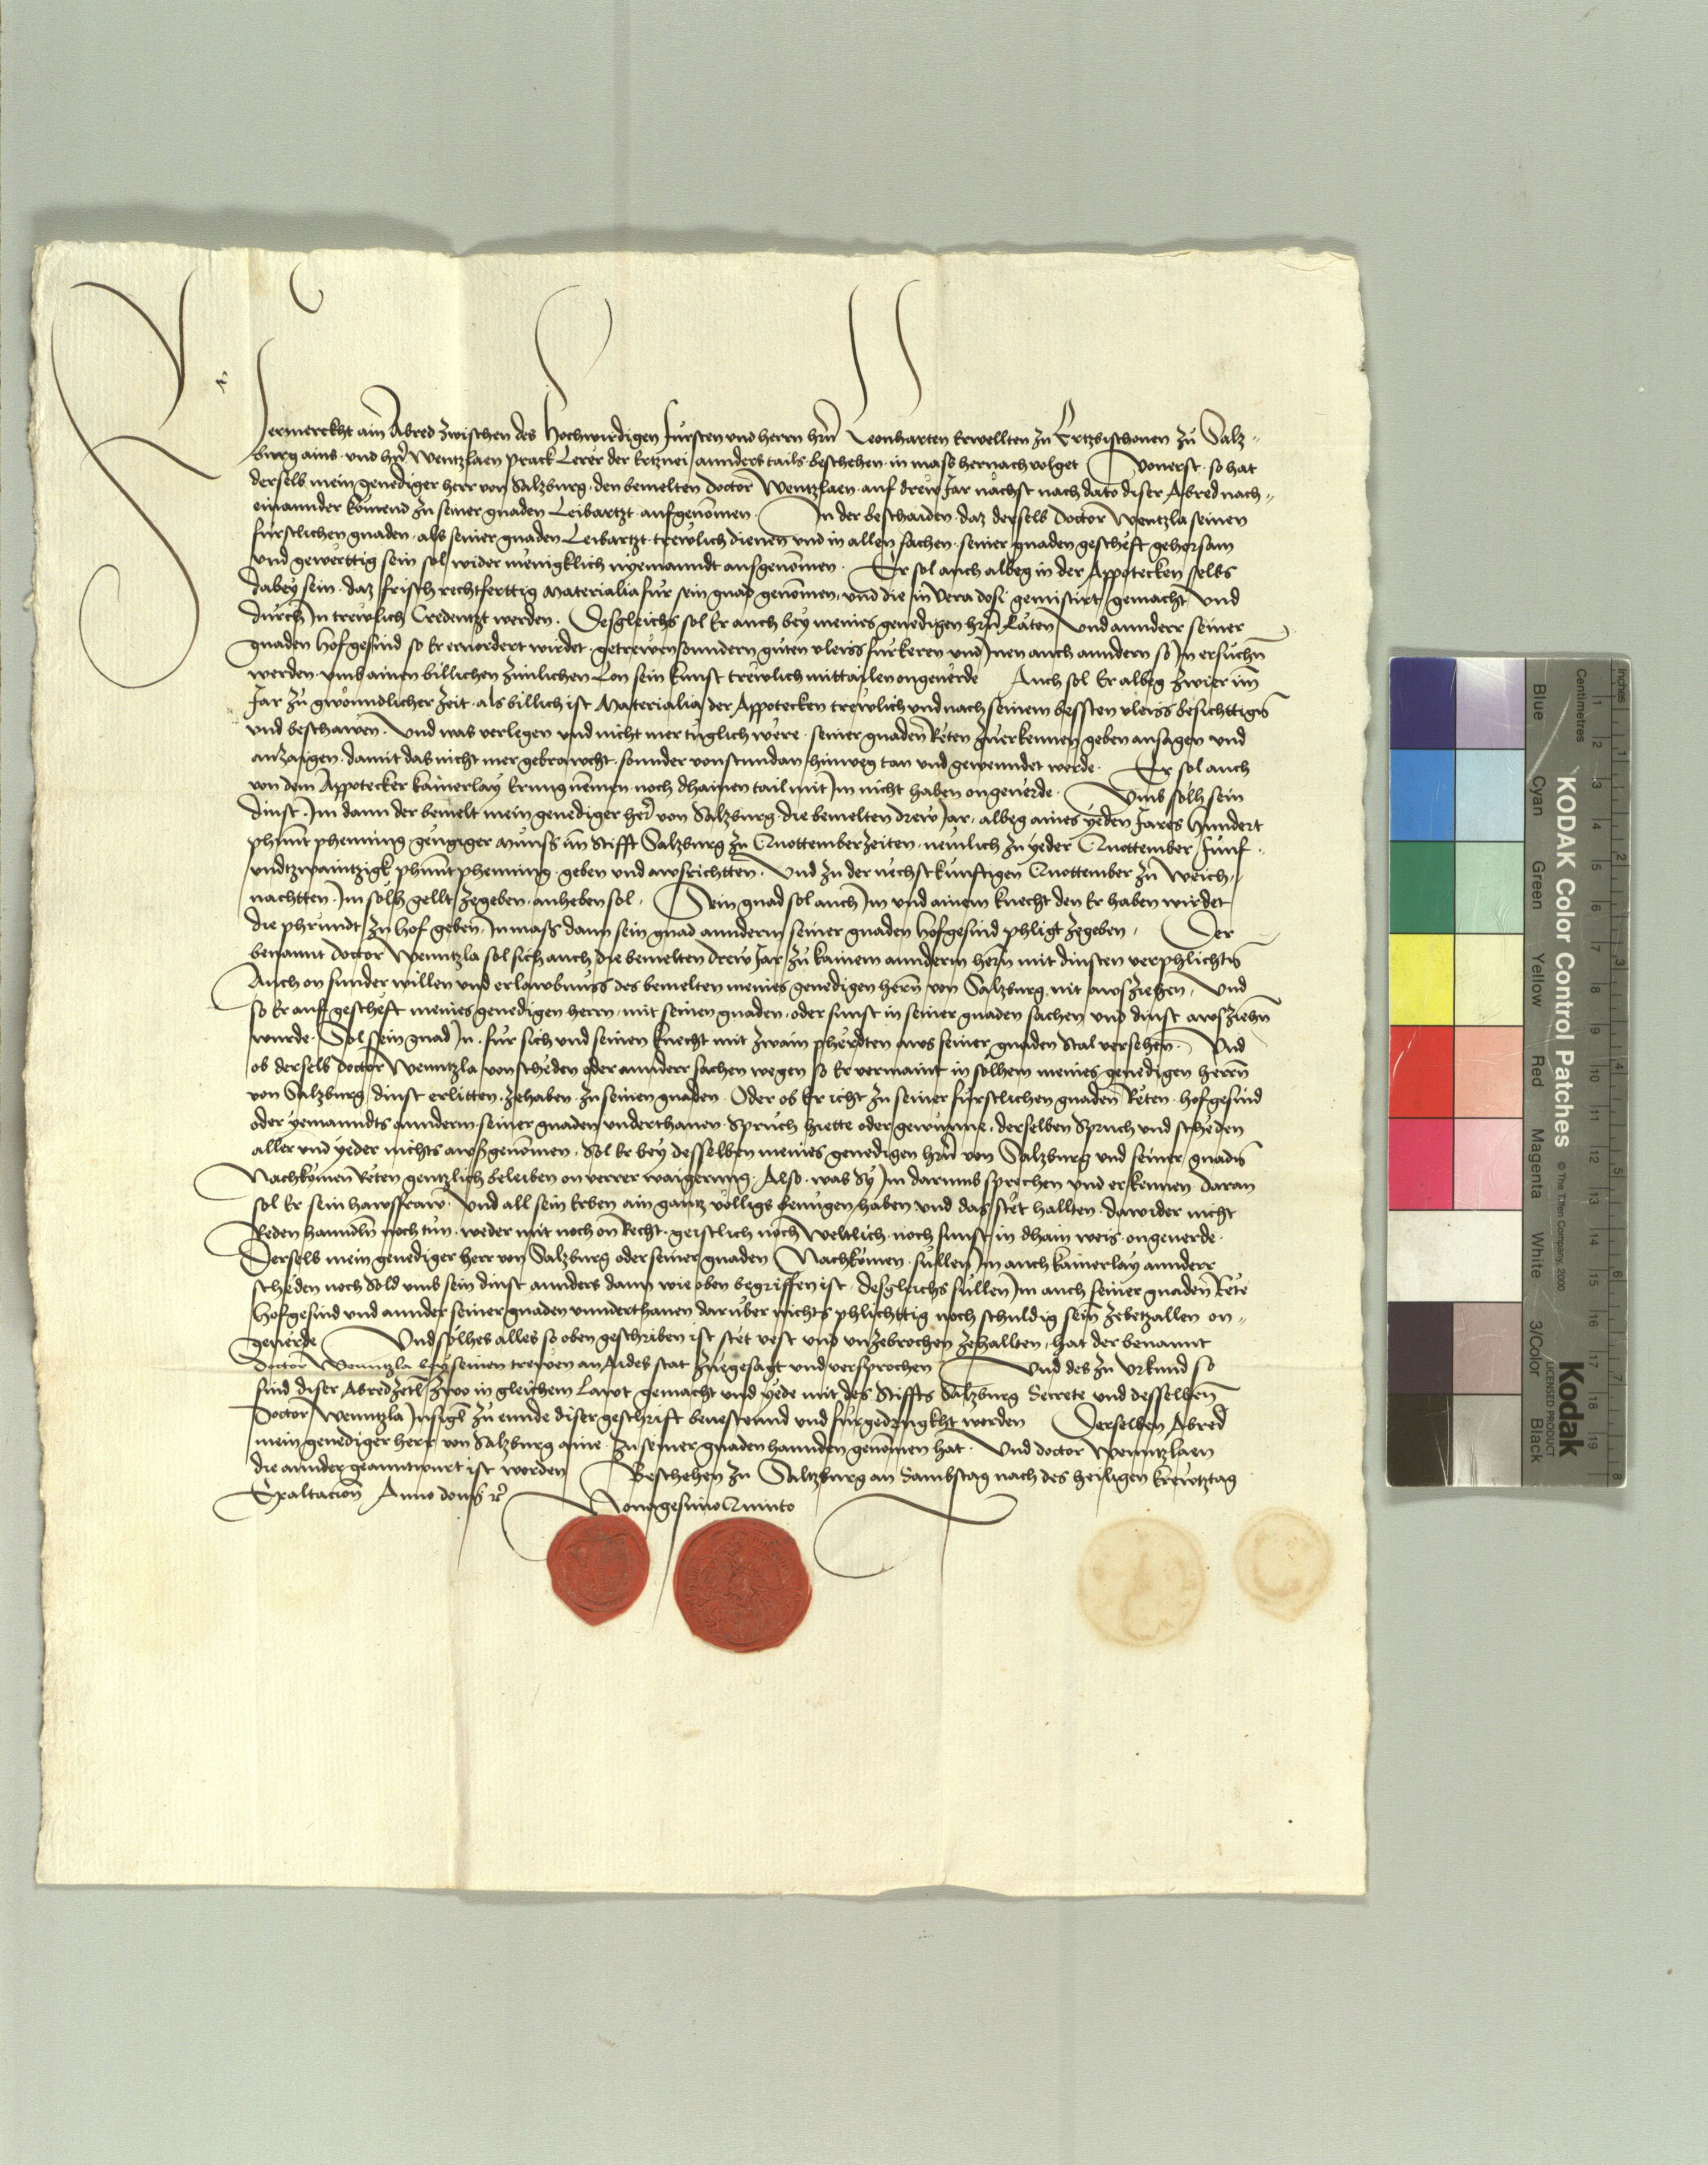 Vermerckht ain Abred zwischen des Hochwirdigen fürsten und herrn hern Leonharten Erwellten zu Ertzbischouen zu Salz-
burg ains und hern Wentzlaen prack Lerer der Ertznei annders tails beschehen in mass hernach volget Vonerst so hat
derselb mein genediger herr von Salzburg den bemelten doctor Wentzlaen auf drew Jar nachst nach dato diser Abred nach-
einannder komend zu seiner gnaden Leibartzt aufgenomen In der beschaiden daz derselb doctor Wentzla seinen
fürstlichen gnaden als seiner gnaden Leibartzt trewlich dienen und in allen sachen seiner gnaden gescheft gehorsam
und gewerttig sein sol wider menigklich nyemanndt ausgenomen Er sol auch albeg in der Appotecken selbs
dabey sein daz frisch rechtferttig Materialia für sein gnad genomen und die in vera dosi gemistirt gemacht und
durch In trewlich Credentzt werden Desgleichs sol Er auch bey meines genedigen hern Räten und annderr seiner
gnaden Hofgesind so Er eruordert wirdet getrewen sonndern guten vleiss fürkeren und Inen auch anndern so In ersuchn
werden umb ainen billichen zimlichen Lon sein kunst trewlich mittailen ongeuerde Auch sol Er albeg zwier im
Jar zu gwonndlicher zeit als billich ist Materialia der Appotecken trewlich und nach seinem bessten vleiss besichttigen
und beschawen Und was verlegen und nicht mer tuglich were seiner gnaden Reten zuerkennen geben ansagen und
anzaigen damit das nicht mer gebrawcht sonnder vonstundan hinweg tan und gewenndet werde Er sol auch
von dem Appotecker kainerlay Erung nemen noch dhainen tail mit Im nicht haben ongeuerde Umb solh sein
dinst Im dann der bemelt mein genediger herr von Salzburg die bemelten drew Jar albeg aines yeden Jares Hundert
phunt phening genngiger Münss im Stifft Salzburg zu Quottemberzeiten nemlich zu yeder Quottember fünf-
undtzwaintzigk phunt phening geben und awsrichtten Und zu der nechstkünftigen Quottember zu Weich-
nachtten Im solh gellt zegeben anheben sol Sein gnad sol auch Im und ainem knecht den Er haben wirdet
die phrundt zu Hof geben Inmass dann sein gnad anndern seiner gnaden Hofgesind phligt zegeben Der
benannt doctor Wenntzla sol sich auch die bemelten drew Jar zu kainem anndern hern mit dinsten verphlichten
Auch on sunder willen und erlawbnuss des bemelten meines genedigen hern von Salzburg nit awsziehen Und
so Er auff gescheft meines genedigen herrn mit seinen gnaden oder sunst in seiner gnaden sachen und dinst awsziehn
wurde Sol sein gnad In für sich und seinen knecht mit zwain pherdten aws seiner gnaden Stal versehen Und
ob derselb doctor Wenntzla von scheden oder annderr sachen wegen so Er vermaint in solhem meines genedigen herrn
von Salzburg dinst erlitten zehaben zu seinen gnaden Oder ob Er icht zu seiner fürstlichen gnaden Reten hofgesind
oder yemanndts anndern seiner gnaden underthanen Spruch hiette oder gewunne derselben Spruch und scheden
aller und yeder nichts awsgenomen Sol Er bey desselben meines genedigen hern von Salzburg und seiner gnaden
Nachkomen Reten genntzlich beleiben on verrer waigerung Also was Sy Im darumb sprechen und erkennen daran
sol Er sein hawsfraw und all sein Erben ain gantz volligs benugen haben und das stet hallten dawider nicht
Reden hanndln noch tun weder mit noch on Recht geistlich noch weltlich noch sunst in dhain weis ongeuerde
Derselb mein genediger herr von Salzburg oder seiner gnaden Nachkomen sullen Im auch kainerlay annderr
scheden noch Sold umb sein dinst annders dann wie oben begriffen ist desgleichs sullen Im auch seiner gnaden Rete
Hofgesind und annder seiner gnaden unnderthanen darüber nichts phlichttig noch schuldig sein zebetzallen on-
geuerde Und solhes alles so oben geschriben ist stet vest und unzebrochen zehallten hat der benannt
doctor Wenntzla bey seinen trewen an Aides stat zuegesagt und versprochen Und des zu Urkund so
sind diser Abredzetl zwo in gleichem Lawt gemacht und yede mit des Stiffts Salzburg Secrete und desselben
Doctor Wenntzla Insigl zu ennde diser geschrift beuestennd und fürgedrugkht worden Derselben Abred
mein genediger herr von Salzburg aine zu seiner gnaden hannden genomen hat Und doctor Wenntzlaen
die annder geanntwurt ist worden Beschehen zu Saltzburg an Sambstag nach des heiligen Krewtztag
Exaltacion Anno domini etc Nonagesimo Quinto
KODAK Color Control Patches
© The Tiffen Company, 2000
Kodak
LICENSED PRODUCT
Inches
Centimetres
Blue Cyan Green Yellow Red Magenta White 3/Color Black
1 2 3 4 5 6 7 8
1 2 3 4 5 6 7 8 9 10 11 12 13 14 15 16 17 18 19